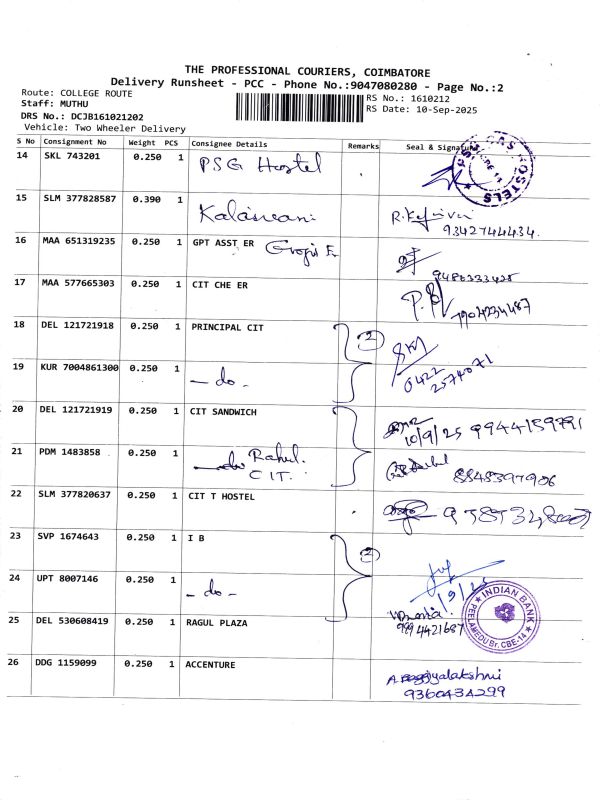 THE PROFESSIONAL COURIERS, COIMBATORE
Delivery Runsheet - PCC - Phone No.:9047080280 - Page No.:2
Route: COLLEGE ROUTE
Staff: MUTHU
DRS No.: DCJB161021202
Vehicle: Two Wheeler Delivery
RS No.: 1610212
RS Date: 10-Sep-2025
S No Consignment No Weight PCS Consignee Details Remarks Seal & Signature
14 SKL 743201 0.250 1 PSG Hostel
HOSTELS
15 SLM 377828587 0.390 1
9342744434.
16 MAA 651319235 0.250 1 GPT ASST ER
17 MAA 577665303 0.250 1 CIT CHE ER
7904234487
18 DEL 121721918 0.250 1 PRINCIPAL CIT 2
19 KUR 7004861300 0.250 1 - do -
0422
2574071
20 DEL 121721919 0.250 1 CIT SANDWICH
10/9/25 9944159791
21 PDM 1483858 0.250 1 Rahul.
CIT.
8848397906
22 SLM 377820637 0.250 1 CIT T HOSTEL
23 SVP 1674643 0.250 1 I B 2
24 UPT 8007146 0.250 1 - do -
INDIAN BANK
PEELAMEDU Br. CBE-14
25 DEL 530608419 0.250 1 RAGUL PLAZA
9994421687
26 DDG 1159099 0.250 1 ACCENTURE
9360434299